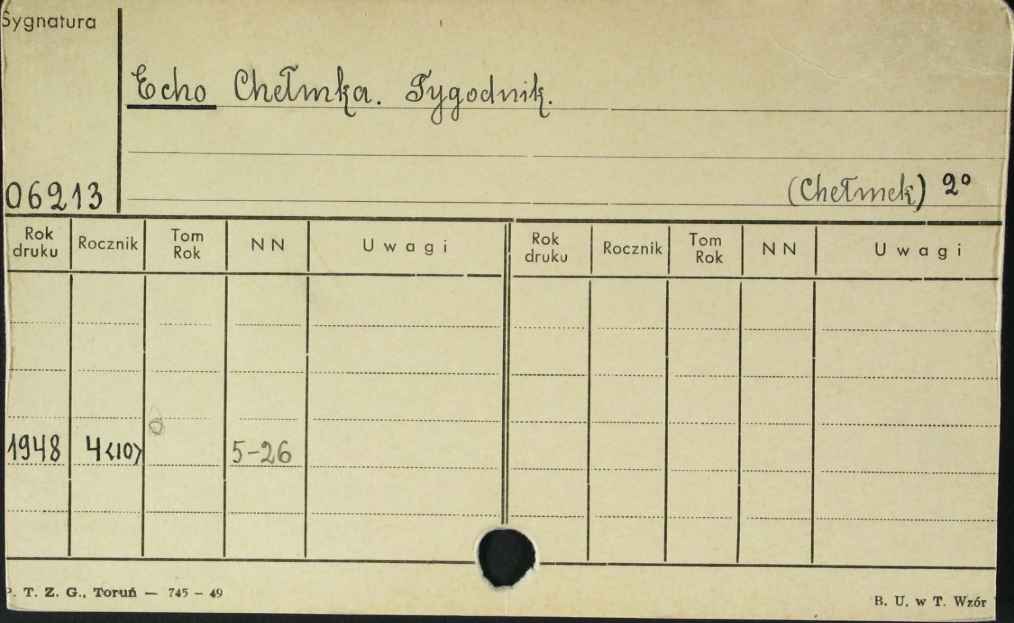 Sygnatura
Echo Chełmka. Tygodnik.
06213
(Chełmek) 2º
Rok druku Rocznik Tom Rok NN Uwagi Rok druku Rocznik Tom Rok NN Uwagi
1948 4<10> 5-26
P. T. Z. G., Toruń — 745 - 49
B. U. w T. Wzór